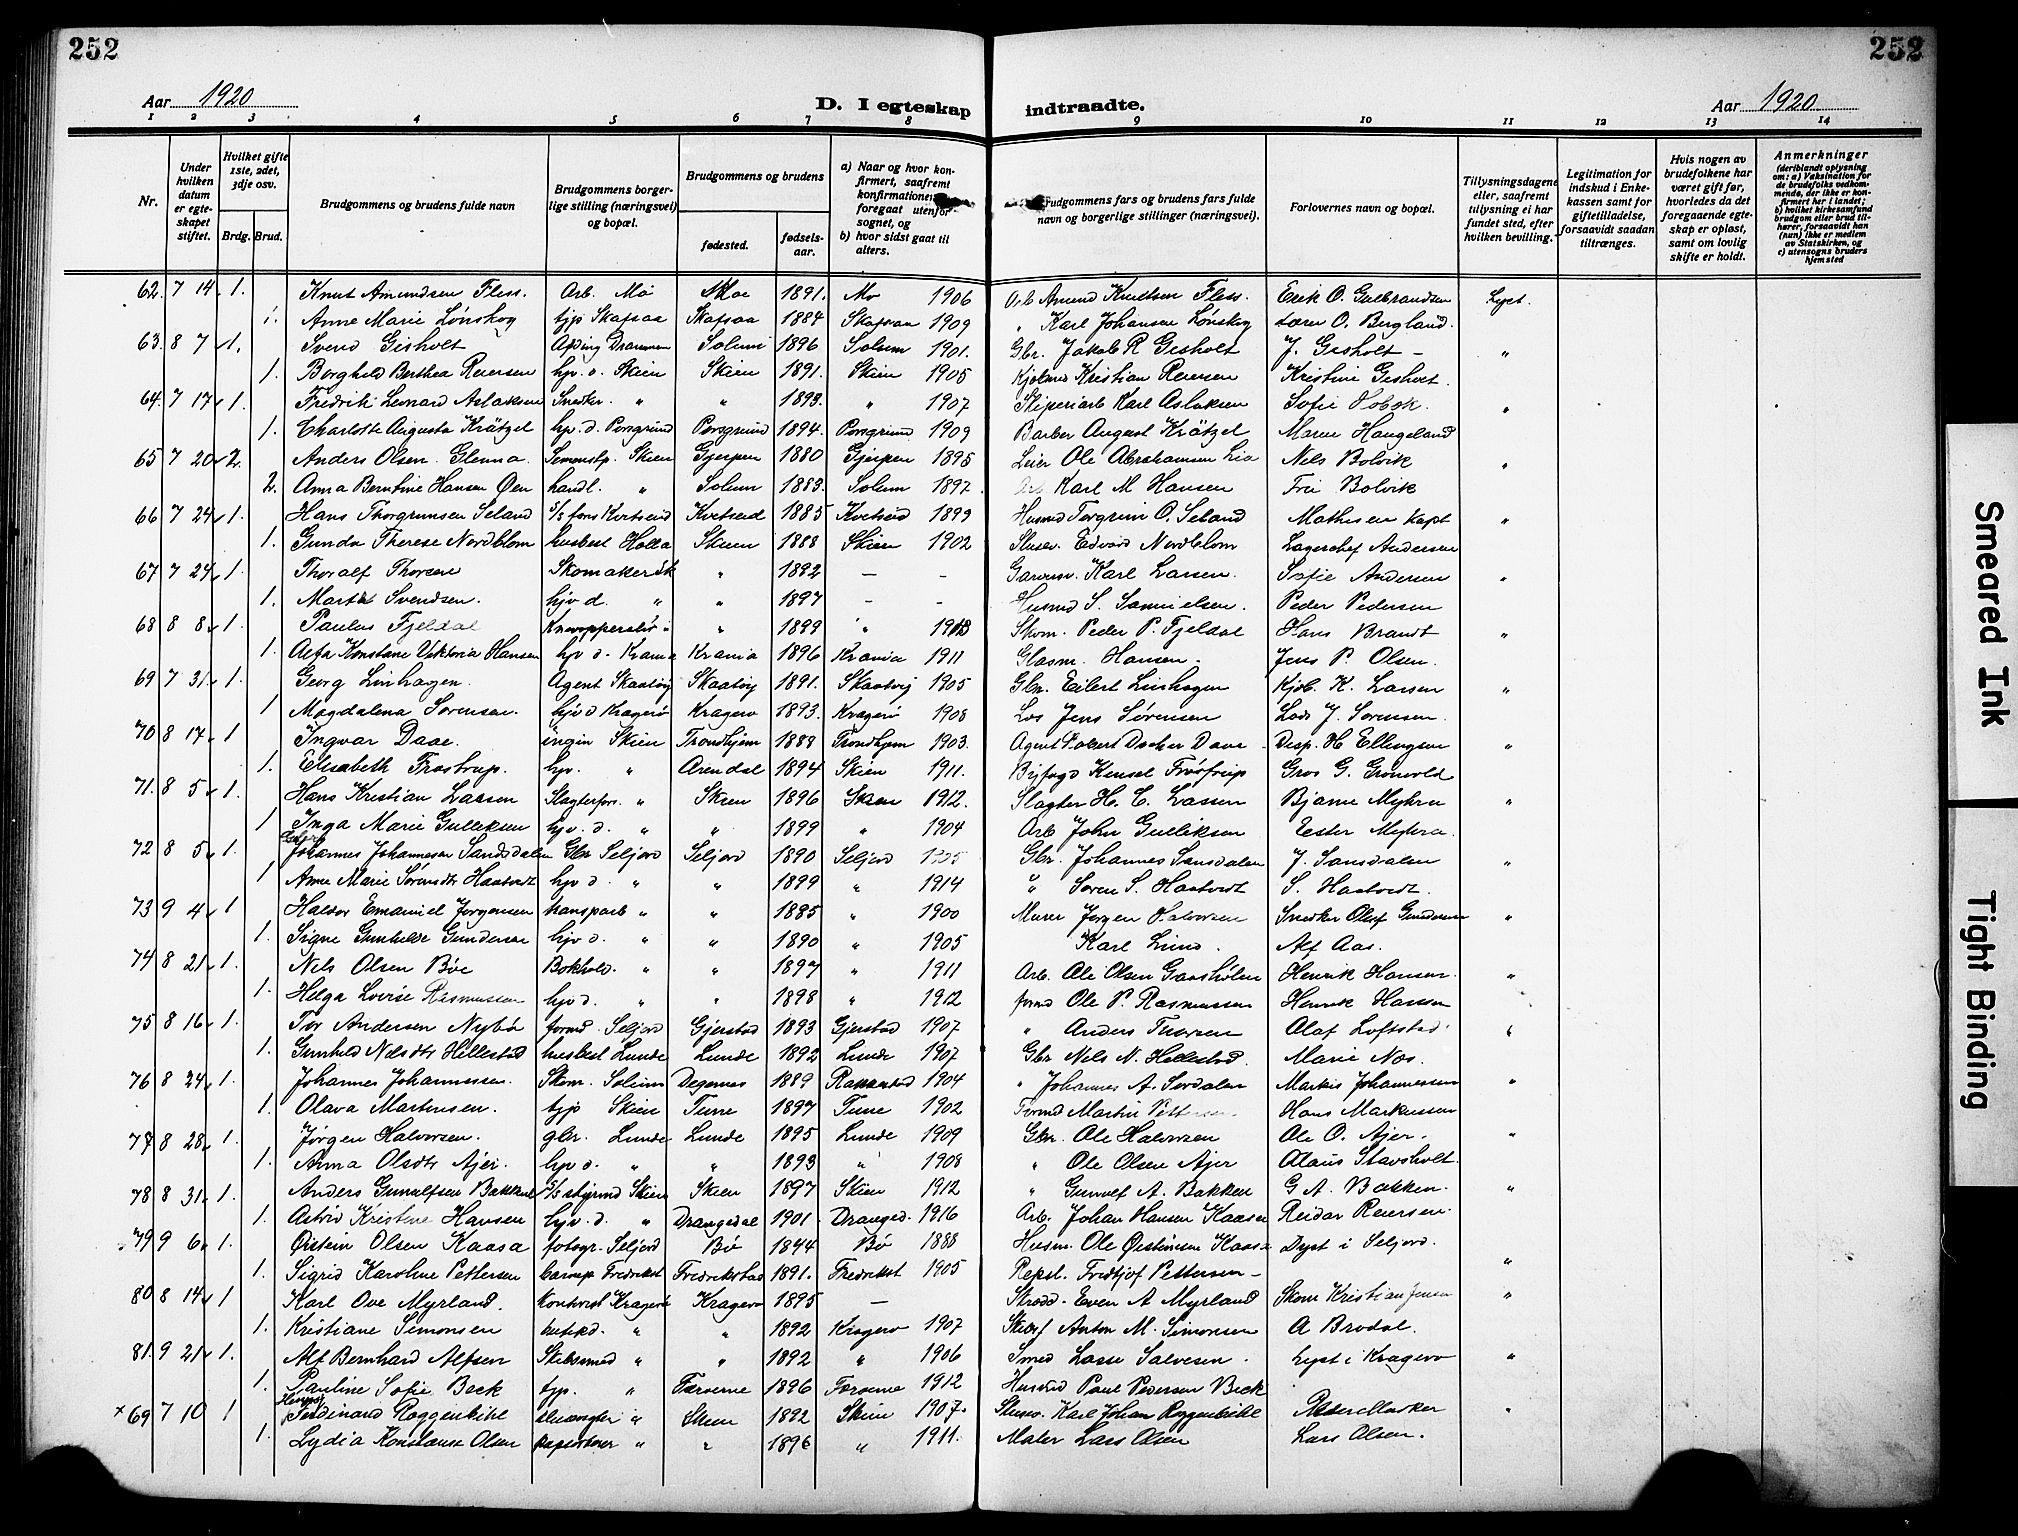 252
252
Aar 1920
D. I egteskap
indtraadte.
Aar 1920
1 2 3 4 5 6 7 8 9 10 11 12 13 14
Nr.
Under hvilken datum er egteskapet stiftet.
Hvilket gifte 1ste, 2det, 3dje osv.
Brdg. Brud.
Brudgommens og brudens fulde navn
Brudgommens borgerlige stilling (næringsvei) og bopæl.
Brudgommens og brudens
fødested.
fødselsaar.
a) Naar og hvor konfirmert, saafremt konfirmationen foregaat utenfor sognet, og
b) hvor sidst gaat til alters.
Brudgommens fars og brudens fars fulde navn og borgerlige stillinger (næringsvei).
Forlovernes navn og bopæl.
Tillysningsdagene eller, saafremt tillysning ei har fundet sted, efter hvilken bevilling.
Legitimation for indskud i Enkekassen samt for giftetilladelse, forsaavidt saadan tiltrænges.
Hvis nogen av brudefolkene har været gift før, hvorledes da det foregaaende egteskap er opløst, samt om lovlig skifte er holdt.
Anmerkninger (deriblandt oplysning om: a) Vaksination for de brudefolks vedkommende, der ikke er konfirmert her i landet; b) hvilket kirkesamfund brudgom eller brud tilhører, forsaavidt han (hun) ikke er medlem av Statskirken, og c) utensogns bruders hjemsted
62. 7 14 1. Knut Amundsen Fless. Arb. Mo Moe 1891. Mo 1906 Arb Amund Knudsen Fless. Erik O. Gulbrandsen Lyst.
1. Anne Marie Lønskog tjp Skafsaa Skafsaa 1884 Skafsaa 1909 " Karl Johansen Lønskog lærer O. Bergland.
63. 8 7 1. Sverd Gisholt Drammen Solum 1896 Solum 1901. Gbr. Jakob R Gisholt J. Gisholt — "
1. Borghild Berthea Reiersen hjv. d. Skien Skien 1891. Skien 1905 Kristian Reiersen Kristine Gisholt.
64. 7 17 1. Fredrik Lenard Aslaksen Snedker. " " 1893. " 1907 Karl Aslaksen Sofie "
1. Charlotte Augusta Krätzel hjv. d. Porsgrund Porsgrund 1894. Porsgrund 1909 Barber August Krätzel Marie Haugeland
65 7 20 2. Anders Olsen Glenna. Skien Gjerpen 1880 Gjerpen 1895 Leier Ole Abrahamsen Lia Nels Bolvik "
2. Anna Berntine Hansen Øen handl. " Solum 1883. Solum 1897. Arb. Karl M Hansen Fru Bolvik
66 7 24 1. Hans Thorgrimsen Seland Kvitseid Kvitseid 1885 Kvitseid 1899 Husmd Torgrim O. Seland Mathisen Kapt "
1. Gunda Therese Nordblom husbest Holla Skien 1888 Skien 1902 Slusev. Edvard Nordblom Lagerchef Andersen
67 7 24 1. Thoralf Thorsen Skomaker Sk " 1892 — — Karl Larsen. Sofie Andersen "
1. Martha Svendsen. hjv d. " " 1897 — — Husmd S. Samuelsen. Peder Pedersen
68 8 8 1. Paulus Fjeldal " " 1899 " Skom. Peder P. Fjeldal Hans Brandt "
1. Alfa Konstane Viktoria Hansen hjv d. Krania Krania 1896 Krania 1911 Glasm. Hansen. Jens P. Olsen.
69 7 31 1. Georg Linhagen. Agent Skaatøy Skaatøy 1891. Skaatøy 1905 Gbr. Eilert Linhagen Kjøb. K. Larsen "
1 Magdalena Sørensen. hjv d Kragerø Kragerø 1893. Kragerø 1908 Los Jens Sørensen Lods J. Sørensen.
70 8 17 1 Ingvar Daae. ingin Skien Trondhjem 1888 Trondhjem 1903. Agent Daae Disp. H Ellingsen "
1. Elisabeth Frostrup. hjv. " Arendal 1894 Skien 1911. Byfogd Kensel Frøstrup Gros G. Grønvold
71. 8 5 1. Hans Kristian Lassen Slagterfor. " Skien 1896 Skien 1912. Slagter H. C. Lassen Bjarne Myhra "
1 Inga Marie Gulliksen hjv. d. " " 1899 " 1904 Arb John Gulliksen Ester Myhra.
72 8 5 1. Johannes Johannesen Sandsdalen Gbr Seljord Seljord 1890 Seljord Gbr. Johannes Sansdalen J. Sansdalen "
1 Anne Marie Sørensdtr Haatvedt hjv d. " " 1899 " 1914 " Søren S. Haatvedt S. Haatvedt.
73 9 4 1 Haldor Emanuel Jørgensen transparb " " 1885 " 1900 Murer Jørgen Halvorsen Snedker Olaf Gundersen "
1. Signe Gunhilde Gundersen hjv d. " " 1890 " 1905 Karl Lund. Alf Aas.
74 8 21 1. Nils Olsen Bøe Bokhold. " " 1897 " 1911 Arb. Ole Olsen Gaashølen Henrik Hansen. "
1. Helga Lovise Rasmussen hjv d. " " 1898 " 1912 formd Ole P. Rasmussen Henrik Hansen
75 8 16 1. Tor Andersen Nybø formd. Seljord Gjerstad 1893 Gjerstad 1907 " Anders Thorsen Olaf Loftstad "
1. Gunhild Nelsdtr Hellestad husbest Lunde Lunde 1892 Lunde 1907 Gbr Nels N. Hellestad. Marie Næs.
76 8 24 1. Johannes Johannessen. Skom. Solum Degernes 1889 Rakkestad 1904 " Johannes A. Sørdalen Markus Johannessen "
1. Olava Martensen. tjp Skien Tune 1897 Tune 1902 Formd Martin Pettersen. Hans Markussen
77 8 28 1. Jørgen Halvorsen. gbr. Lunde Lunde 1895 Lunde 1909 Gbr. Ole Halvorsen Ole O. Ajer. "
1. Anna Olsdtr Ajer. hjv d. " " 1893 " 1908 " Ole Olsen Ajer Olaus Stavsholt.
78 8 31 1. Anders Gunulfsen Bakken S/s styrmd Skien Skien 1897 Skien 1912 " Gunulf A. Bakken G A. Bakken. "
1. Astrid Kristine Hansen hjv. d. " Drangedal 1901. Dranged. 1916 Arb. Johan Hansen Kaasa Reidar Reiersen.
79 9 6 1. Øistein Olsen Kaasa fotogr. Seljord Bø 1844 Bø 1888 Husm. Ole Øisteinsen Kaasa Dyst i Seljord.
1. Sigrid Karoline Pettersen Fredrikst Fredrikstad 1891. Fredrikst 1905 Repsl. Fredtjof Pettersen — "
80 8 14 1 Karl Ove Myrland. Kontorist Kragerø Kragerø 1895 — Even A Myrland Skom Kristian Jensen "
1. Kristiane Simonsen butikd. " " 1892 Kragerø 1907 Anton M. Simonsen A Brødal.
81. 9 21 1. Alf Bernhard Alfsen Skibssmed " " 1892 " 1906 Smed Lasse Salvesen. Lyst i Kragerø "
1. Pauline Sofie Beck tjp. " Færøerne 1896 Færøerne 1912 Husmd Paul Pedersen Beck
x 69 7 10 1 Ferdinand Roggenbihl " Skien 1892 Skien 1907. Slusev. Karl Johan Roggenbihl "
1. Lydia Konstanse Olsen " " 1896 " 1911. Maler Lars Olsen Lars Olsen.
Smeared Ink
Tight Binding